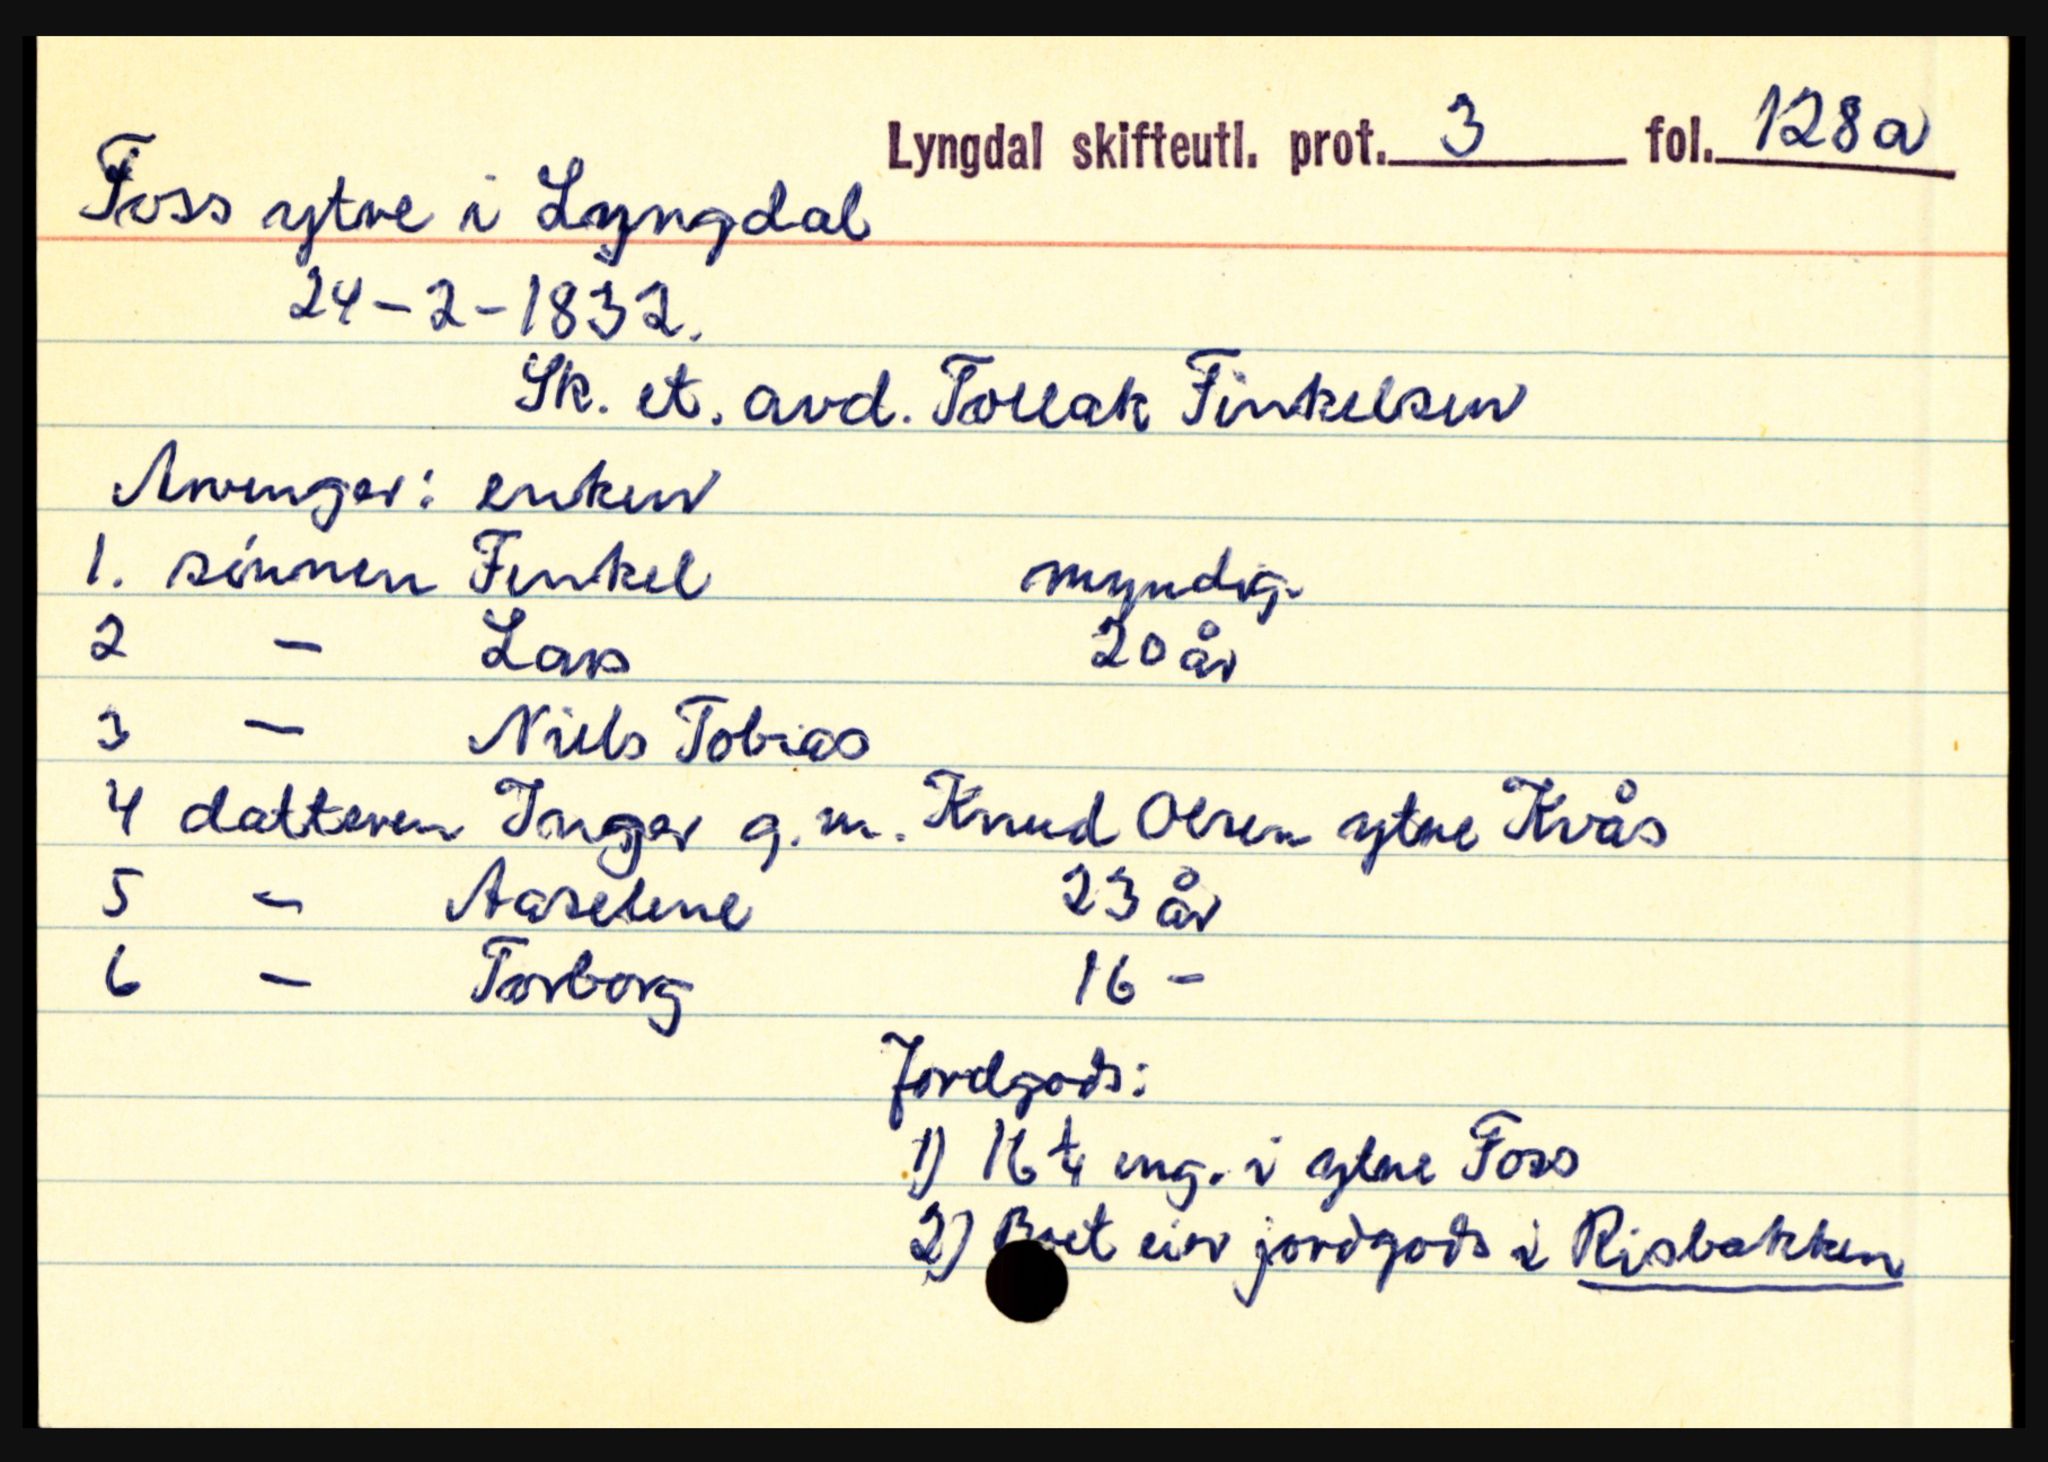 Lyngdal skifteutl. prot. 3 fol. 128a
Foss ytre i Lyngdal
24-2-1832.
Sk. et. avd. Tollak Finkelsen
Arvenger: enken
1. sönnen Finkel myndig
2 - Lars 20 år
3 - Niels Tobias
4 datteren Inger g.m. Knud Olsen ytre Kvås
5 - Aaselene 23 år
6 - Torborg 16 -
Jordgods:
1) 16 eng. i ytre Foss
2) Boet eier jordgods i Risbakken